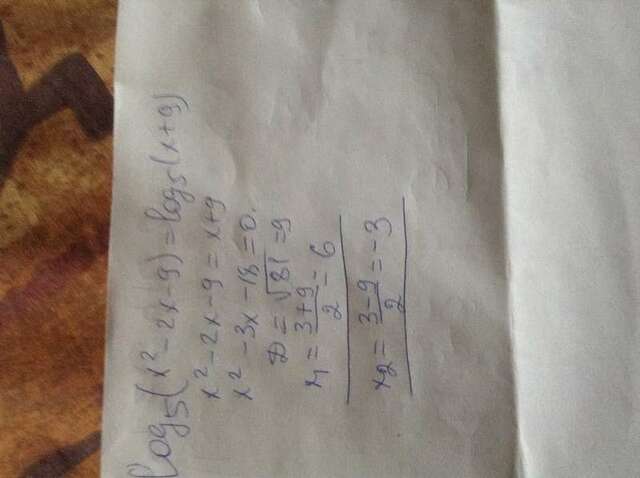 log₅(x²-2x-9)=log₅(x+9)
x²-2x-9=x+9
x²-3x-18=0.
D=√81=9
x₁=(3+9)/2=6
x₂=(3-9)/2=-3